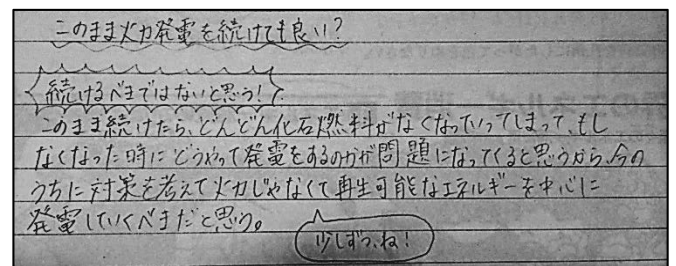 このまま火力発電を続けても良い?
続けるべきではないと思う!
このまま続けたら、どんどん化石燃料がなくなっていってしまって、もし
なくなった時にどうやって発電をするのかが問題になってくると思うから、今の
うちに対策を考えて火力じゃなくて再生可能なエネルギーを中心に
発電していくべきだと思う。
少しずつ、ね!